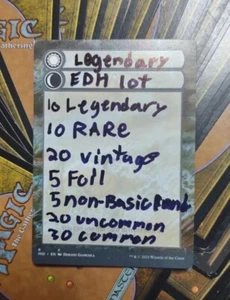 Legendary
EDH lot
10 Legendary
10 RARe
20 vintage
5 Foil
5 non-Basic Land
20 uncommon
30 common
MAGIC
The Gathering